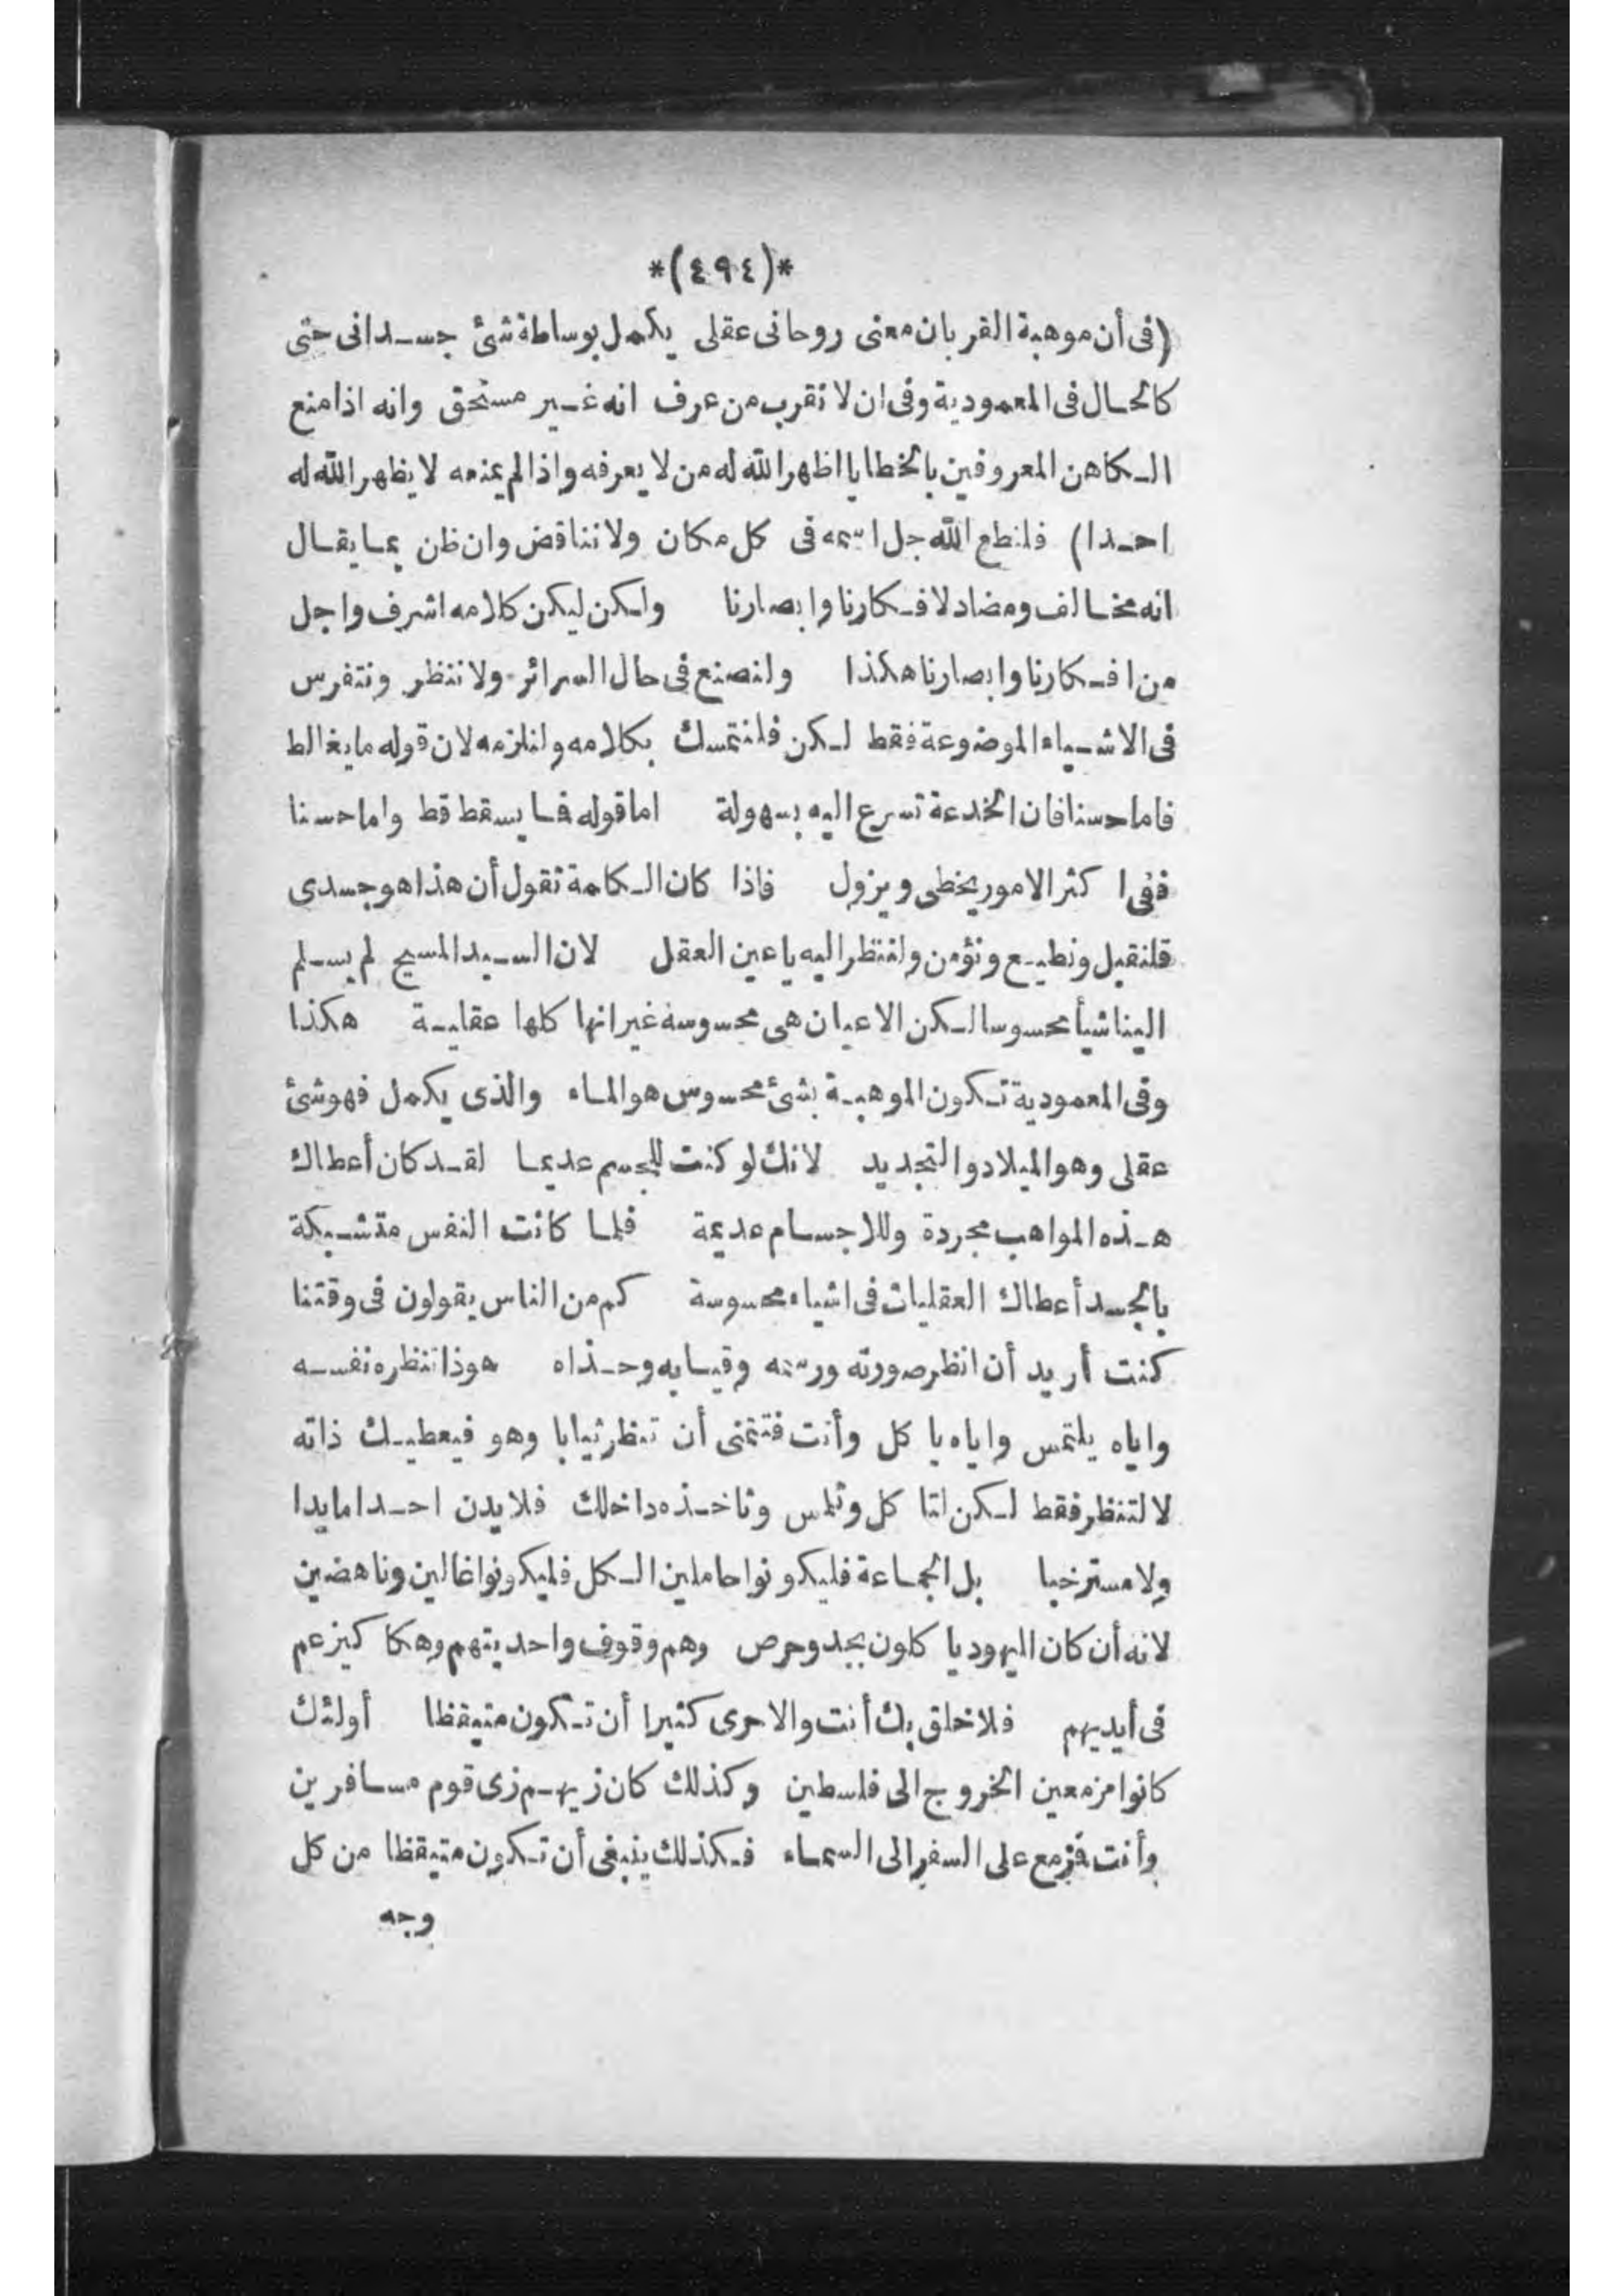 *(٤٩٤)*
(فى أن موهبة القربان معنى روحانى عقلى يكمل بوساطة شئ جسدانى حتى
كالحال فى المعمودية وفى ان لا تقرب من عرف انه غير مستحق وانه اذا منع
الكاهن المعروفين بالخطايا اظهر الله له من لا يعرفه واذا لم يمنعه لا يظهر الله له
احدا) فلنطع الله جل اسمه فى كل مكان ولا نناقض وان ظن بما يقال
انه مخالف ومضاد لافكارنا وابصارنا ولكن ليكن كلامه اشرف واجل
من افكارنا وابصارنا هكذا ولنصنع فى حال السرائر ولا ننظر ونتفرس
فى الاشياء الموضوعة فقط لكن فلنتمسك بكلامه ولنلزمه لان قوله ما يغالط
فاما حسنا فان الخدعة تسرع اليه بسهولة اما قوله فما يسقط قط واما حسنا
ففى اكثر الامور يخطى ويزول فاذا كان الكلمة تقول أن هذا هو جسدى
فلنقبل ونطيع ونؤمن ولننظر اليه باعين العقل لان السيد المسيح لم يسلم
الينا شيأ محسوسا لكن الاعيان هى محسوسة غير انها كلها عقلية هكذا
وفى المعمودية تكون الموهبة بشئ محسوس هو الماء والذى يكمل فهو شئ
عقلى وهو الميلاد والتجديد لانك لو كنت للجسم عديما لقد كان أعطاك
هذه المواهب مجردة وللاجسام عديمة فلما كانت النفس متشبكة
بالجسد أعطاك العقليات فى اشياء محسوسة كم من الناس يقولون فى وقتنا
كنت أريد أن انظر صورته ورسمه وقيابه وحذاه هوذا تنظره نفسه
واياه يلتمس واياه ياكل وأنت فتتمنى أن تنظر ثيابا وهو فيعطيك ذاته
لا لتنظر فقط لكن لتاكل وتلمس وتاخذه داخلك فلا يدن احدا مايدا
ولا مسترخيا بل الجماعة فليكونوا حاملين الكل فليكونوا غالين وناهضين
لانه أن كان اليهود ياكلون بجد وحرص وهم وقوف واحديتهم وهكاكيزعم
فى أيديهم فلاخلق بك أنت والاحرى كثيرا أن تكون متيقظا أولئك
كانوا مزمعين الخروج الى فلسطين وكذلك كان زيهم زى قوم مسافرين
وأنت فزمع على السفر الى السماء فكذلك ينبغى أن تكون متيقظا من كل
وجه